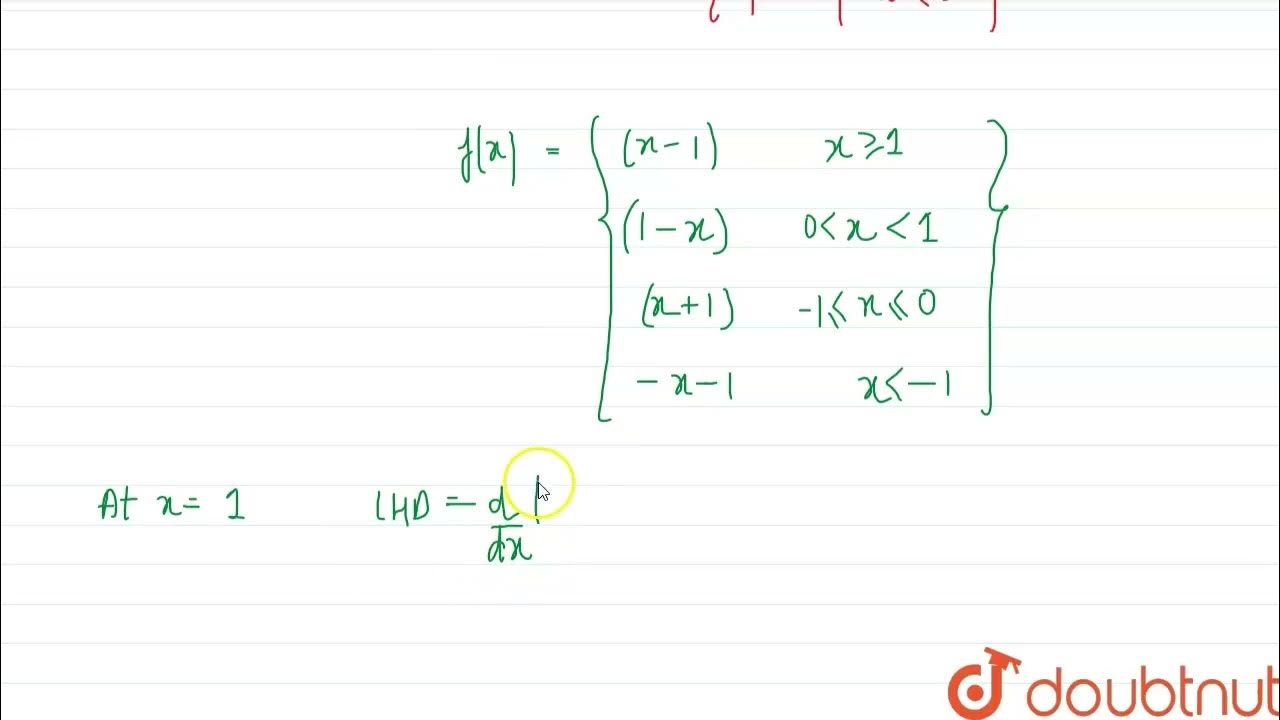 f(x) = { (x-1) x ⩾ 1
(1-x) 0 < x < 1
(x+1) -1 ⩽ x ⩽ 0
-x-1 x ⩽ -1 }
At x = 1 LHD = d/dx
doubtnut